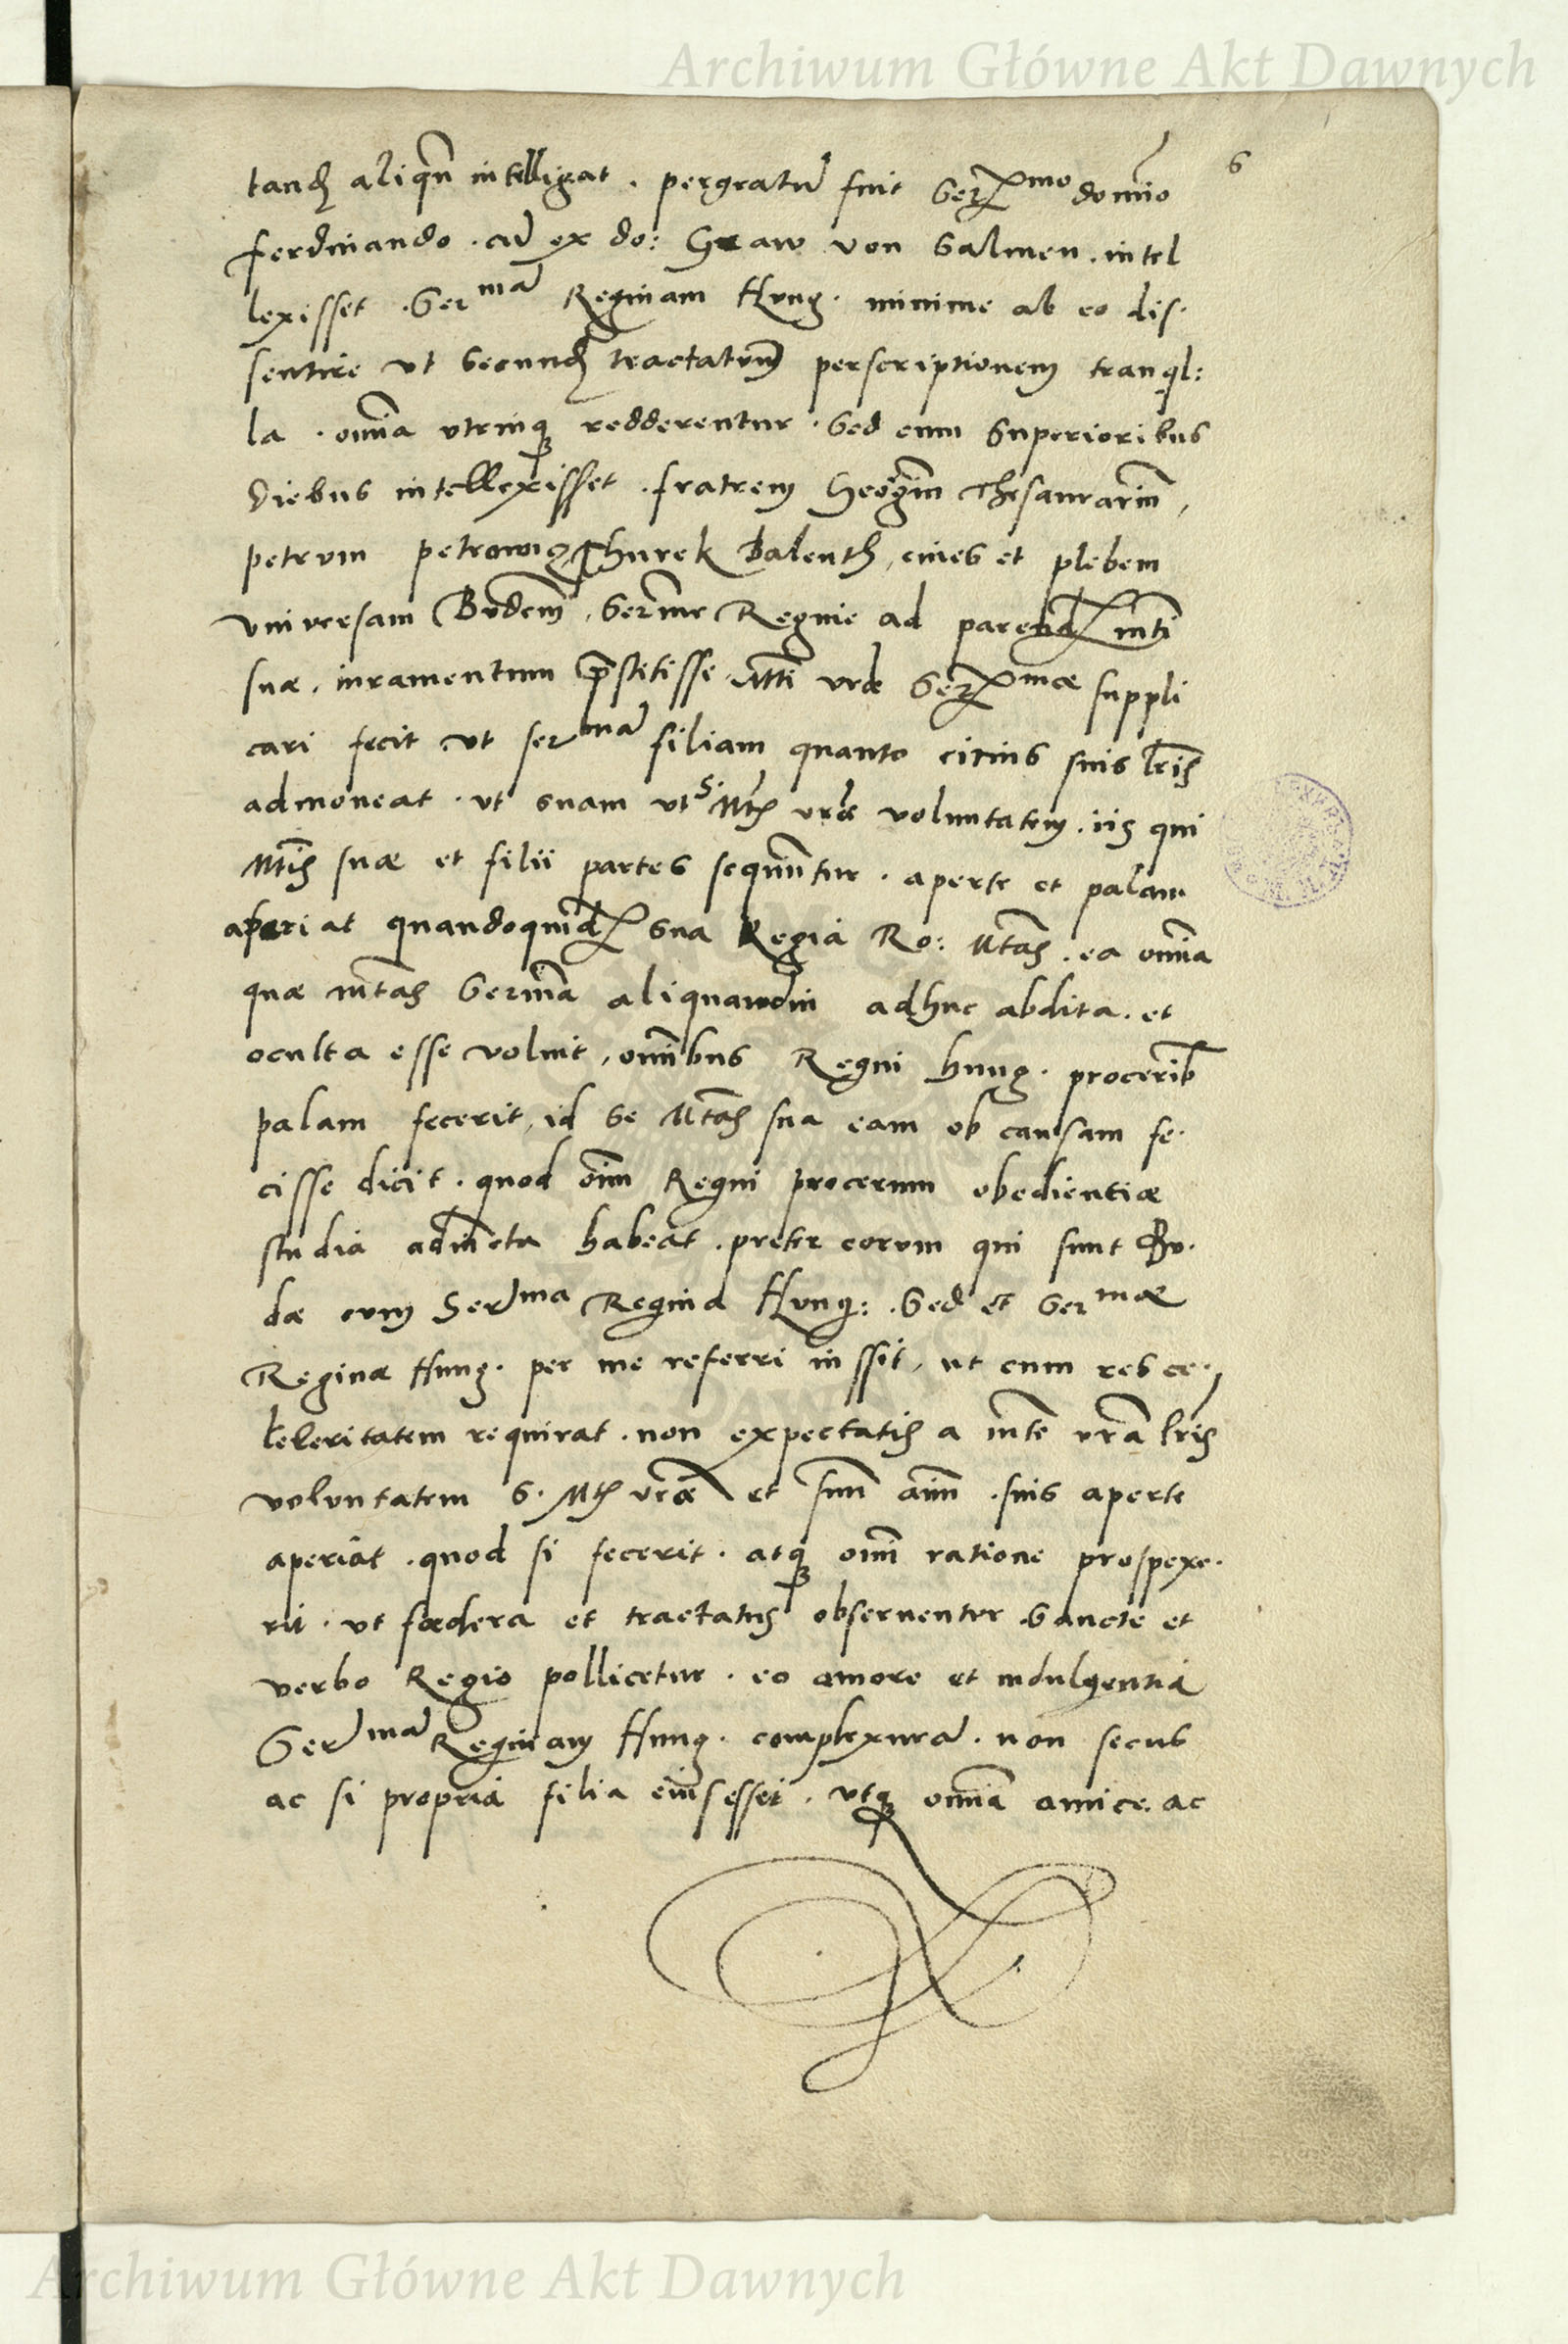 Archiwum Główne Akt Dawnych
6
tandē aliqñ intelligat . pergratū fuit Serᵐᵒ domīo
ferdinando . cū ex do: Graw von Salmen . intel
lexisset . Serᵐᵃ̄ Reginam Hung . minime ab eo dis.
sentire ut secundū tractatuū perscriptionem tranql:
la . omīa utrinqꝫ redderentur . Sed cum superioribus
diebus intellexisset . fratrem Georgiū Thesaurariū,
petrum petrowiz, Thurek balenth, cives et plebem
universam Budensē, Serᵐᵉ Reginæ ad parendū mti
suæ . iuramentum p̄stitisse, Mtti vræ Serᵐᵃᵉ suppli
cari fecit ut serᵐᵃ̄ filiam quanto citius suis lr̄is
admoneat . ut suam ut S. Mtis vræ voluntatem . iis qui
Mtis suæ et filii partes sequuntur . aperte et palam
aperiat quandoquidē sua Regia Ro: Mtas . ea omīa
quæ mtas Serᵐᵃ aliquamdiu adhuc abdita . et
oculta esse voluit, omībus Regni hung . procerib
palam fecerit, id se Mtas sua eam ob causam fe.
cisse dicit . quod oīm Regni procerum obedientiæ
studia adiuncta habeat . preter eorum qui sunt Bu.
dæ cum Serᵐᵃ Regina Hung: . Sed et Serᵐᵃᵉ
Reginæ Hung . per me referri iussit, ut cum res ce.
leleritatem requirat . non expectatis a mte vrā lr̄is
voluntatem S. Mtis vræ et suū aīm . suis aperte
aperiat . quod si fecerit . atqꝫ omī ratione prospexe.
rit . ut fœdera et tractatus observentur Sancte et
verbo Regio pollicetur . eo amore et indulgentia
Serᵐᵃ̄ Reginam Hung . complexurā . non secus
ac si propria filia eius esset . utqꝫ omīa amice ac
Archiwum Główne Akt Dawnych